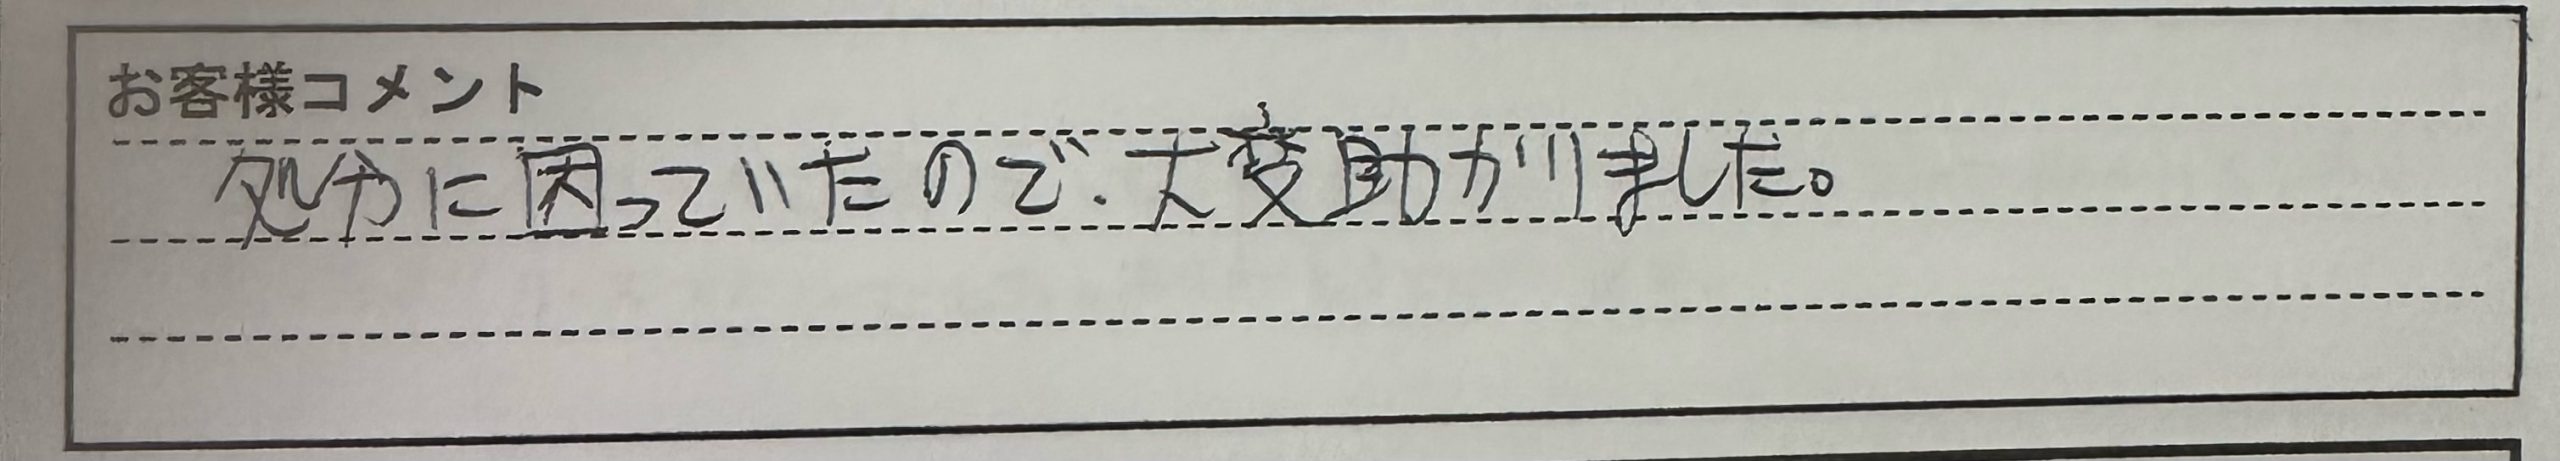 お客様コメント
処分に困っていたので、大変助がりました。